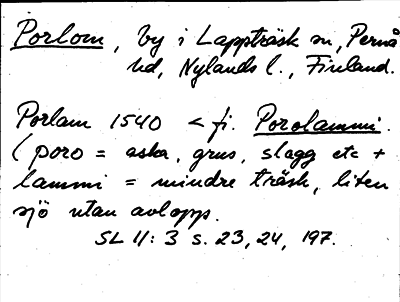 Porlom, by i Lappträsk sn, Pernå
hd, Nylands l., Finland.
Porlam 1540 < fi. Porolammi.
(poro = aska, grus, slagg etc +
lammi = mindre träsk, liten
sjö utan avlopp.
SL II: 3 s. 23, 24, 197.